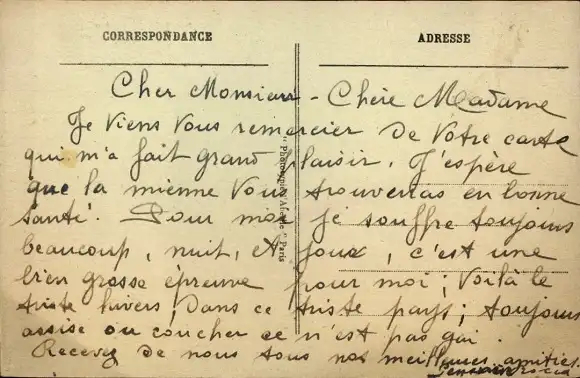 CORRESPONDANCE
ADRESSE
Cher Monsieur - Chère Madame
Je viens vous remercier de votre carte
qui m'a fait grand plaisir. J'espère
que la mienne vous trouveras en bonne
santé. Pour moi je souffre toujours
beaucoup, nuit, et jour, c'est une
bien grosse épreuve pour moi; voilà le
triste hivers, dans ce triste pays; toujours
assise ou coucher ce n'est pas gai.
Recevez de nous tous nos meilleures amitiés.
" Paris